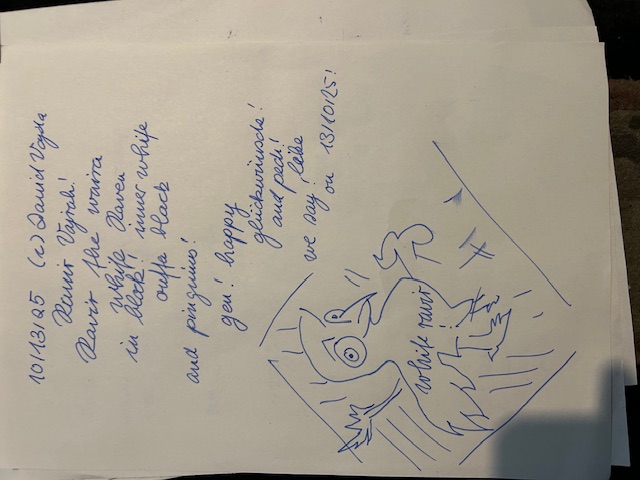 10/13/25 (c) David Vajda
Ravir the warra
white Raven
in black! inner white
outte black
and pinguins!
gen! happy
glückwünsche!
and pech!
we say! like
on 13/10/25!
white ravir!